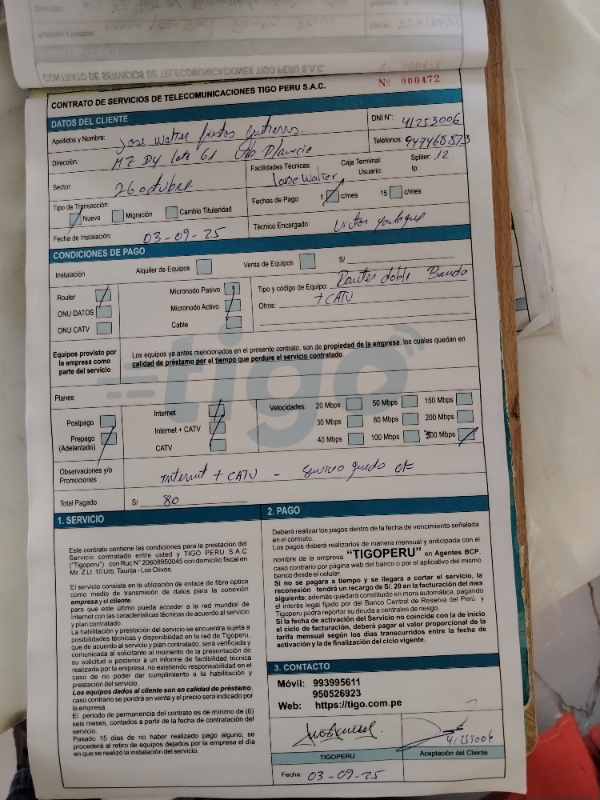 CONTRATO DE SERVICIOS DE TELECOMUNICACIONES TIGO PERU S.A.C.
Nº 000472
DATOS DEL CLIENTE
Apellidos y Nombre: Jose Walter
DNI Nº: 41253006
Dirección: MZ D4 lote 61
Teléfonos: 947468573
Sector: 26 octubre
Facilidades Técnicas: Jose Walter
Caja Terminal:
Splitter: 12
Usuario:
Ip:
Tipo de Transacción:
Nueva
Migración
Cambio Titularidad
Fechas de Pago: 1 c/mes 15 c/mes
Fecha de Instalación: 03-09-25
Técnico Encargado: Victor
CONDICIONES DE PAGO
Instalación
Alquiler de Equipos
Venta de Equipos
S/
Router
ONU DATOS
ONU CATV
Micronodo Pasivo
Micronodo Activo
Cable
Tipo y código de Equipo: Router doble Banda
Otros: + CATV
Equipos provisto por
la empresa como
parte del servicio
Los equipos ya antes mencionados en el presente contrato, son de propiedad de la empresa, los cuales quedan en
calidad de préstamo por el tiempo que perdure el servicio contratado.
tigo
Planes
Postpago
Prepago
(Adelantado)
Internet
Internet + CATV
CATV
Velocidades:
20 Mbps
50 Mbps
150 Mbps
30 Mbps
80 Mbps
200 Mbps
40 Mbps
100 Mbps
300 Mbps
Observaciones y/o
Promociones
Internet + CATV - Servicio quedo ok
Total Pagado S/ 80
1. SERVICIO
Este contrato contiene las condiciones para la prestación del
Servicio contratado entre usted y TIGO PERU S.A.C
("Tigoperu") con Ruc N° 20608950045 con domicilio fiscal en
Mz. Z Lt. 10 Urb. Taurija - Los Olivos.
El servicio consiste en la utilización de enlace de fibra óptica
como medio de transmisión de datos para la conexión
empresa y el cliente
para que este último pueda acceder a la red mundial de
Internet con las características técnicas de acuerdo al servicio
y plan contratado.
La habilitación y prestación del servicio se encuentra sujeta a
posibilidades técnicas y disponibilidad en la red de Tigoperu,
que de acuerdo al servicio y plan contratado, será verificada y
comunicada al solicitante al momento de la presentación de
su solicitud o posterior a un informe de factibilidad técnica
realizada por la empresa, no existiendo responsabilidad en el
caso de no poder dar cumplimiento a la habilitación y
prestación del servicio.
Los equipos dados al cliente son en calidad de préstamo,
caso contrario se pondrá en venta y el precio será indicado por
la empresa
El periodo de permanencia del contrato es de mínimo de (6)
seis meses, contados a partir de la fecha de contratación del
servicio.
Pasado 15 días de no haber realizado pago alguno, se
procederá al retiro de equipos dejados por la empresa el día
en que se realizó la instalación del servicio.
2. PAGO
Deberá realizar los pagos dentro de la fecha de vencimiento señalada
en el contrato.
Los pagos deberá realizarlos de manera mensual y anticipada con el
nombre de la empresa "TIGOPERU" en Agentes BCP,
caso contrario por página web del banco o por el aplicativo del mismo
banco desde el celular.
Si no se pagara a tiempo y se llegara a cortar el servicio, la
reconexión tendrá un recargo de S/. 20 en la facturación del mes
siguiente, además quedará constituido en mora automática, pagando
el interés legal fijado por el Banco Central de Reserva del Perú y
Tigoperu podrá reportar su deuda a centrales de riesgo.
Si la fecha de activación del Servicio no coincide con la de inicio
del ciclo de facturación, deberá pagar el valor proporcional de la
tarifa mensual según los días transcurridos entre la fecha de
activación y la de finalización del ciclo vigente.
3. CONTACTO
Móvil: 993995611
950526923
Web: https://tigo.com.pe
41253006
TIGOPERU
Aceptación del Cliente
Fecha: 03-09-25